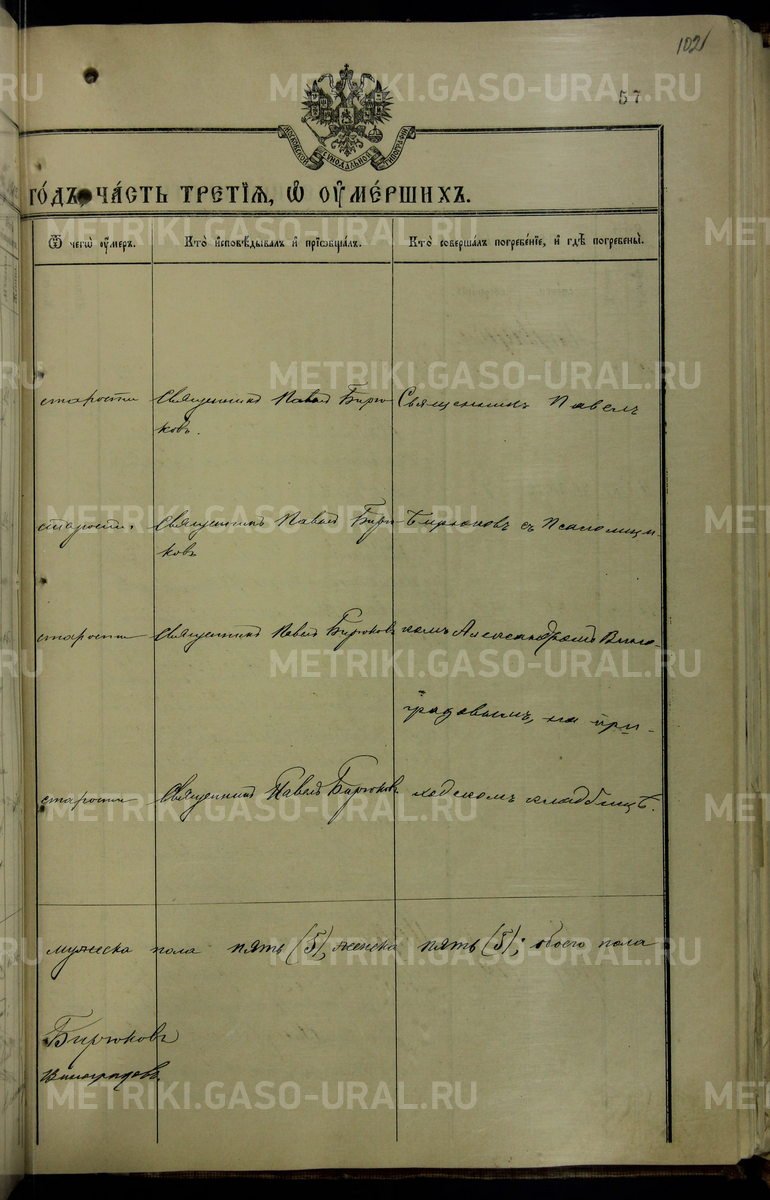 102
57
МОСКОВСКОЙ СѴНОДАЛЬНОЙ ТИПОГРАФІИ
ГО́ДЪ, ЧА́СТЬ ТРЕТІѦ, Ѡ҆ ОУ҆МЕ́РШИХЪ.
Ѿ чегѡ̀ оу҆́меръ.
Кто̀ и҆сповѣ́дывалъ и҆ прїѡбща́лъ.
Кто̀ соверша́лъ погребе́нїе, и҆ гдѣ̀ погребены̀.
старости
Священникъ Павелъ Бирю-
ковъ.
Священникъ Павелъ
старости.
Священникъ Павелъ Бирю-
ковъ
Бирюковъ съ Псаломщи-
старости
Священникъ Павелъ Бирюковъ
комъ Александромъ Вино-
градовымъ, на при-
старости
Священникъ Павелъ Бирюковъ
ходскомъ кладбищѣ.
мужеска пола пять (5), женска пять (5); обоего пола
Бирюковъ
Виноградовъ.
METRIKI.GASO-URAL.RU